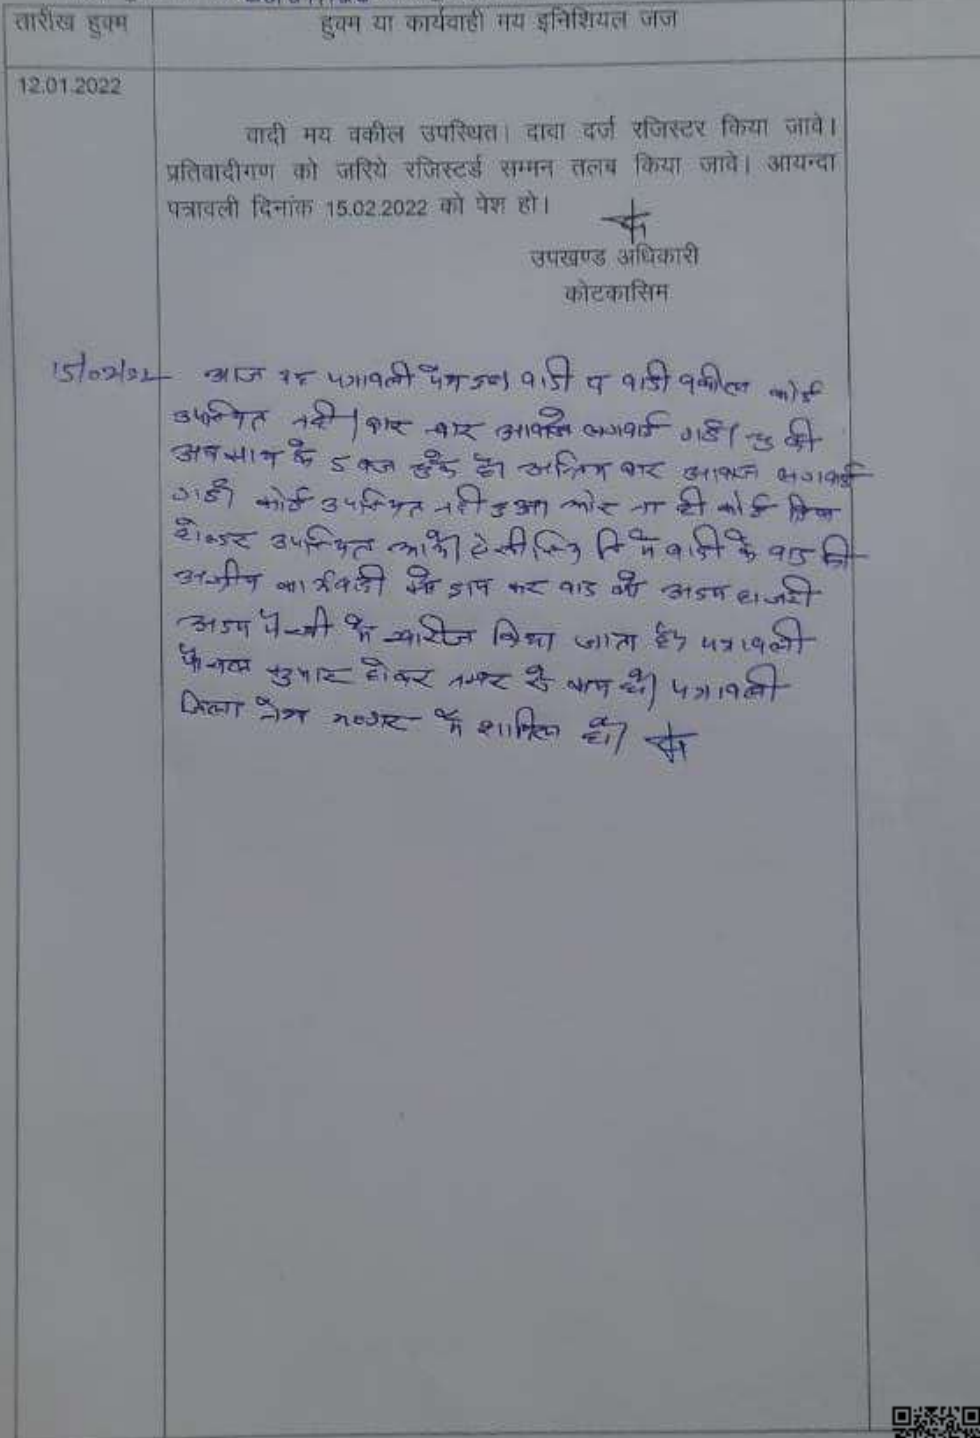 तारीख हुक्म
हुक्म या कार्यवाही मय इनिशियल जज
12.01.2022
वादी मय वकील उपस्थित। दावा दर्ज रजिस्टर किया जावे।
प्रतिवादीगण को जरिये रजिस्टर्ड सम्मन तलब किया जावे। आयन्दा
पत्रावली दिनांक 15.02.2022 को पेश हो।
उपखण्ड अधिकारी
कोटकासिम
15/02/22 आज यह पत्रावली पेश हुई। वादी व वादी वकील कोई
उपस्थित नही। बार बार आवाजे लगवाई गई। चुकी
के 5 बज चुके है। अन्तिम बार आवाज लगवाई
गई। कोई उपस्थित नही हुआ और ना ही कोई
उपस्थित वादी के वाद की
कर वाद को अदम हाजरी
अदम पैरवी में खारीज किया जाता है। पत्रावली
फैसल सुमार होकर नम्बर से कम हो। पत्रावली
में शामिल हो।